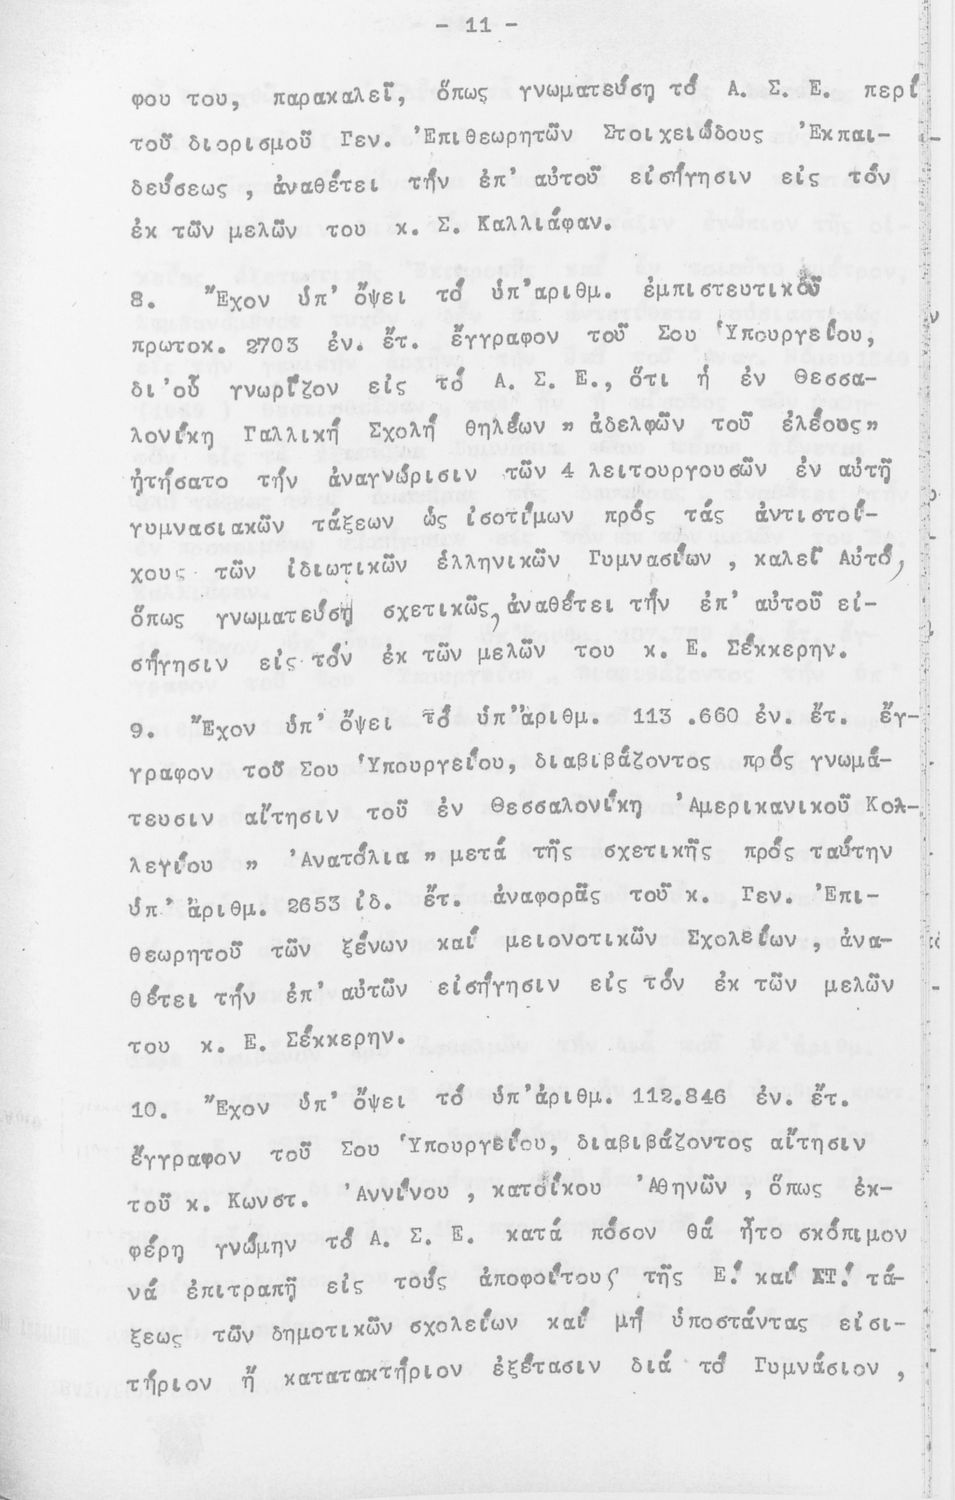 - 11 -
φου του, παρακαλεῖ, ὅπως γνωματεύση τό Α. Σ. Ε. περί
τοῦ διορισμοῦ Γεν. Ἐπιθεωρητῶν Στοιχειώδους Ἐκπαι-
δεύσεως , ἀναθέτει τήν ἐπ' αὐτοῦ εἰσήγησιν εἰς τόν
ἐκ τῶν μελῶν του κ. Σ. Καλλιάφαν.
8. Ἔχον ὑπ' ὄψει τό ὑπ'αριθμ. ἐμπιστευτικοῦ
πρωτοκ. 2703 ἐν. ἔτ. ἔγγραφον τοῦ Σου Ὑπουργείου,
δι'οὗ γνωρίζον εἰς τό Α. Σ. Ε., ὅτι ἡ ἐν Θεσσα-
λονίκη Γαλλική Σχολή θηλέων " ἀδελφῶν τοῦ ἐλέους"
ᾐτήσατο τήν ἀναγνώρισιν τῶν 4 λειτουργουσῶν ἐν αὐτῇ
γυμνασιακῶν τάξεων ὡς ἰσοτίμων πρός τάς ἀντιστοί-
χους τῶν ἰδιωτικῶν ἑλληνικῶν Γυμνασίων , καλεῖ Αὐτό,
ὅπως γνωματεύση σχετικῶς, ἀναθέτει τήν ἐπ' αὐτοῦ εἰ-
σήγησιν εἰς τόν ἐκ τῶν μελῶν του κ. Ε. Σέκκερην.
9. Ἔχον ὑπ' ὄψει τό ὑπ'ἀριθμ. 113 .660 ἐν. ἔτ. ἔγ-
γραφον τοῦ Σου Ὑπουργείου, διαβιβάζοντος πρός γνωμά-
τευσιν αἴτησιν τοῦ ἐν Θεσσαλονίκη Ἀμερικανικοῦ Κολ-
λεγίου " Ἀνατόλια " μετά τῆς σχετικῆς πρός ταύτην
ὑπ' ἀριθμ. 2653 ἰδ. ἔτ. ἀναφορᾶς τοῦ κ. Γεν. Ἐπι-
θεωρητοῦ τῶν ξένων καί μειονοτικῶν Σχολείων , ἀνα-
θέτει τήν ἐπ' αὐτῶν εἰσήγησιν εἰς τόν ἐκ τῶν μελῶν
του κ. Ε. Σέκκερην.
10. Ἔχον ὑπ' ὄψει τό ὑπ'ἀριθμ. 112.846 ἐν. ἔτ.
ἔγγραφον τοῦ Σου Ὑπουργείου, διαβιβάζοντος αἴτησιν
τοῦ κ. Κωνστ. Ἀννίνου , κατοίκου Ἀθηνῶν , ὅπως ἐκ-
φέρη γνώμην τό Α. Σ. Ε. κατά πόσον θά ἦτο σκόπιμον
νά ἐπιτραπῇ εἰς τούς ἀποφοίτους τῆς Ε! καί ΣΤ! τά-
ξεως τῶν δημοτικῶν σχολείων καί μή ὑποστάντας εἰσι-
τήριον ἤ κατατακτήριον ἐξέτασιν διά τό Γυμνάσιον ,